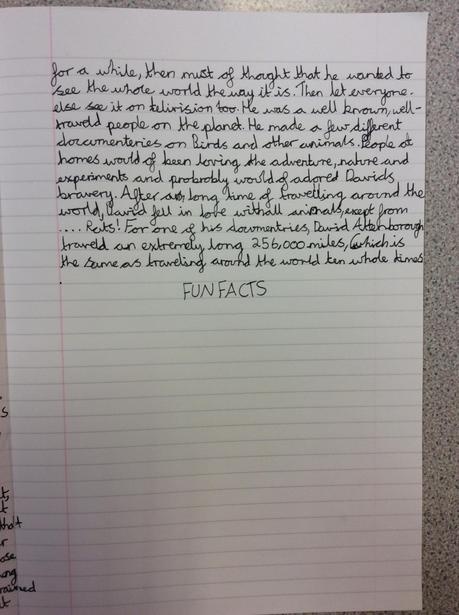 for a while, then must of thought that he wanted to
see the whole world the way it is. Then let everyone.
else see it on telivision too. He was a well known, well-
traveld people on the planet. He made a few different
documenteries on Birds and other animals. People at
homes would of been loving the adventure, nature and
experiments and probrobly would of adored Davids
bravery. After a long time of travelling around the
world, David fell in love withall animals, exept from
.... Rats! For one of his documentries, David Attenborough
traveld an extremely long 256,000 miles, (which is
the same as traveling around the world ten whole times
.
FUN FACTS
s
t,
t
that
r
ose
ong
rained
t